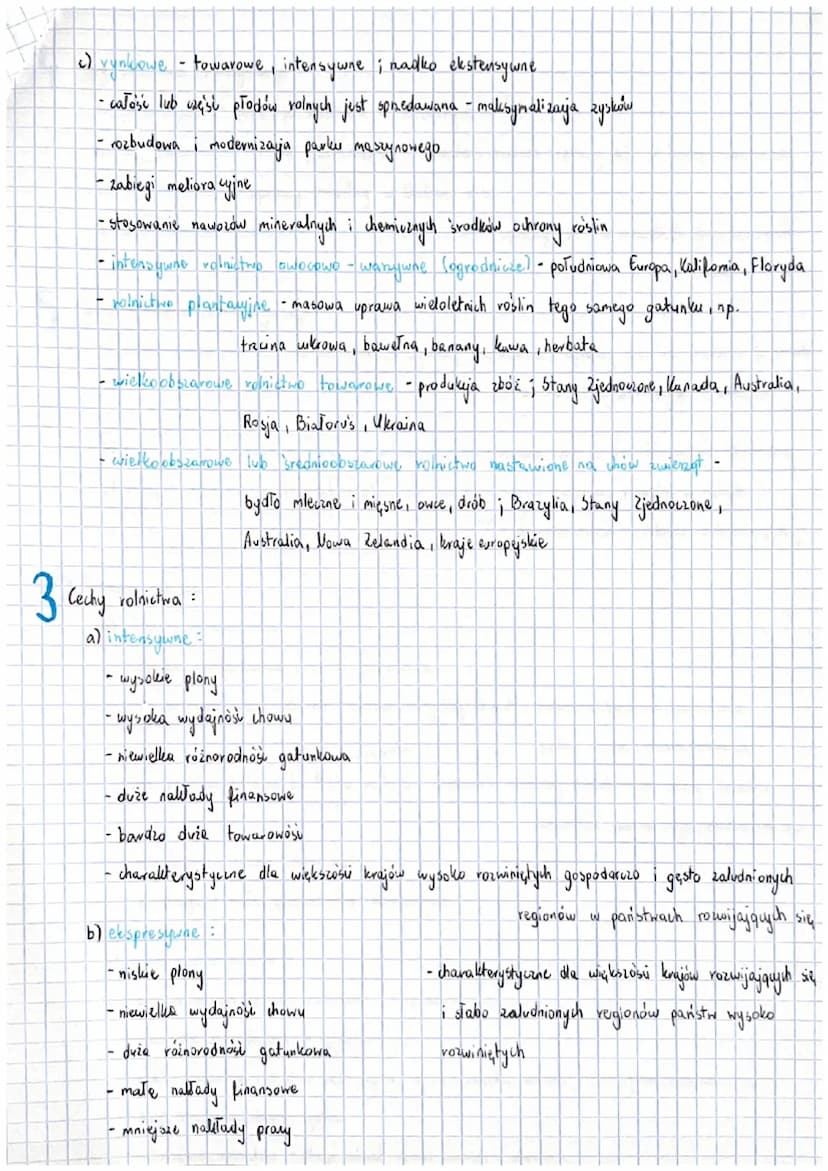 c) rynkowe - towarowe, intensywne ; rzadko ekstensywne
- całość lub część płodów rolnych jest sprzedawana - maksymalizacja zysków
- rozbudowa i modernizacja parku maszynowego
- zabiegi melioracyjne
- stosowanie nawozów mineralnych i chemicznych środków ochrony roślin
- intensywne rolnictwo owocowo - warzywne (ogrodnicze) - południowa Europa, Kalifornia, Floryda
- rolnictwo plantacyjne - masowa uprawa wieloletnich roślin tego samego gatunku, np.
trzcina cukrowa, bawełna, banany, kawa, herbata
- wielkoobszarowe rolnictwo towarowe - produkcja zbóż ; Stany Zjednoczone, Kanada, Australia,
Rosja, Białoruś, Ukraina
- wielkoobszarowe lub średnioobszarowe rolnictwo nastawione na chów zwierząt -
bydło mleczne i mięsne, owce, drób ; Brazylia, Stany Zjednoczone,
Australia, Nowa Zelandia, kraje europejskie
3 Cechy rolnictwa :
a) intensywne :
- wysokie plony
- wysoka wydajność chowu
- niewielka różnorodność gatunkowa
- duże nakłady finansowe
- bardzo duża towarowość
- charakterystyczne dla większości krajów wysoko rozwiniętych gospodarczo i gęsto zaludnionych
regionów w państwach rozwijających się
b) ekspresywne :
- niskie plony
- niewielka wydajność chowu
- duża różnorodność gatunkowa
- małe nakłady finansowe
- mniejsze nakłady pracy
- charakterystyczne dla większości krajów rozwijających się
i słabo zaludnionych regionów państw wysoko
rozwiniętych